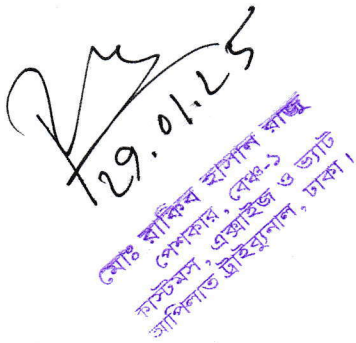 29.01.25
মোঃ রাকিব হাসান রাজু
পেশকার, বেঞ্চ-১
কাস্টমস, এক্সাইজ ও ভ্যাট
আপিলাত ট্রাইব্যুনাল, ঢাকা।